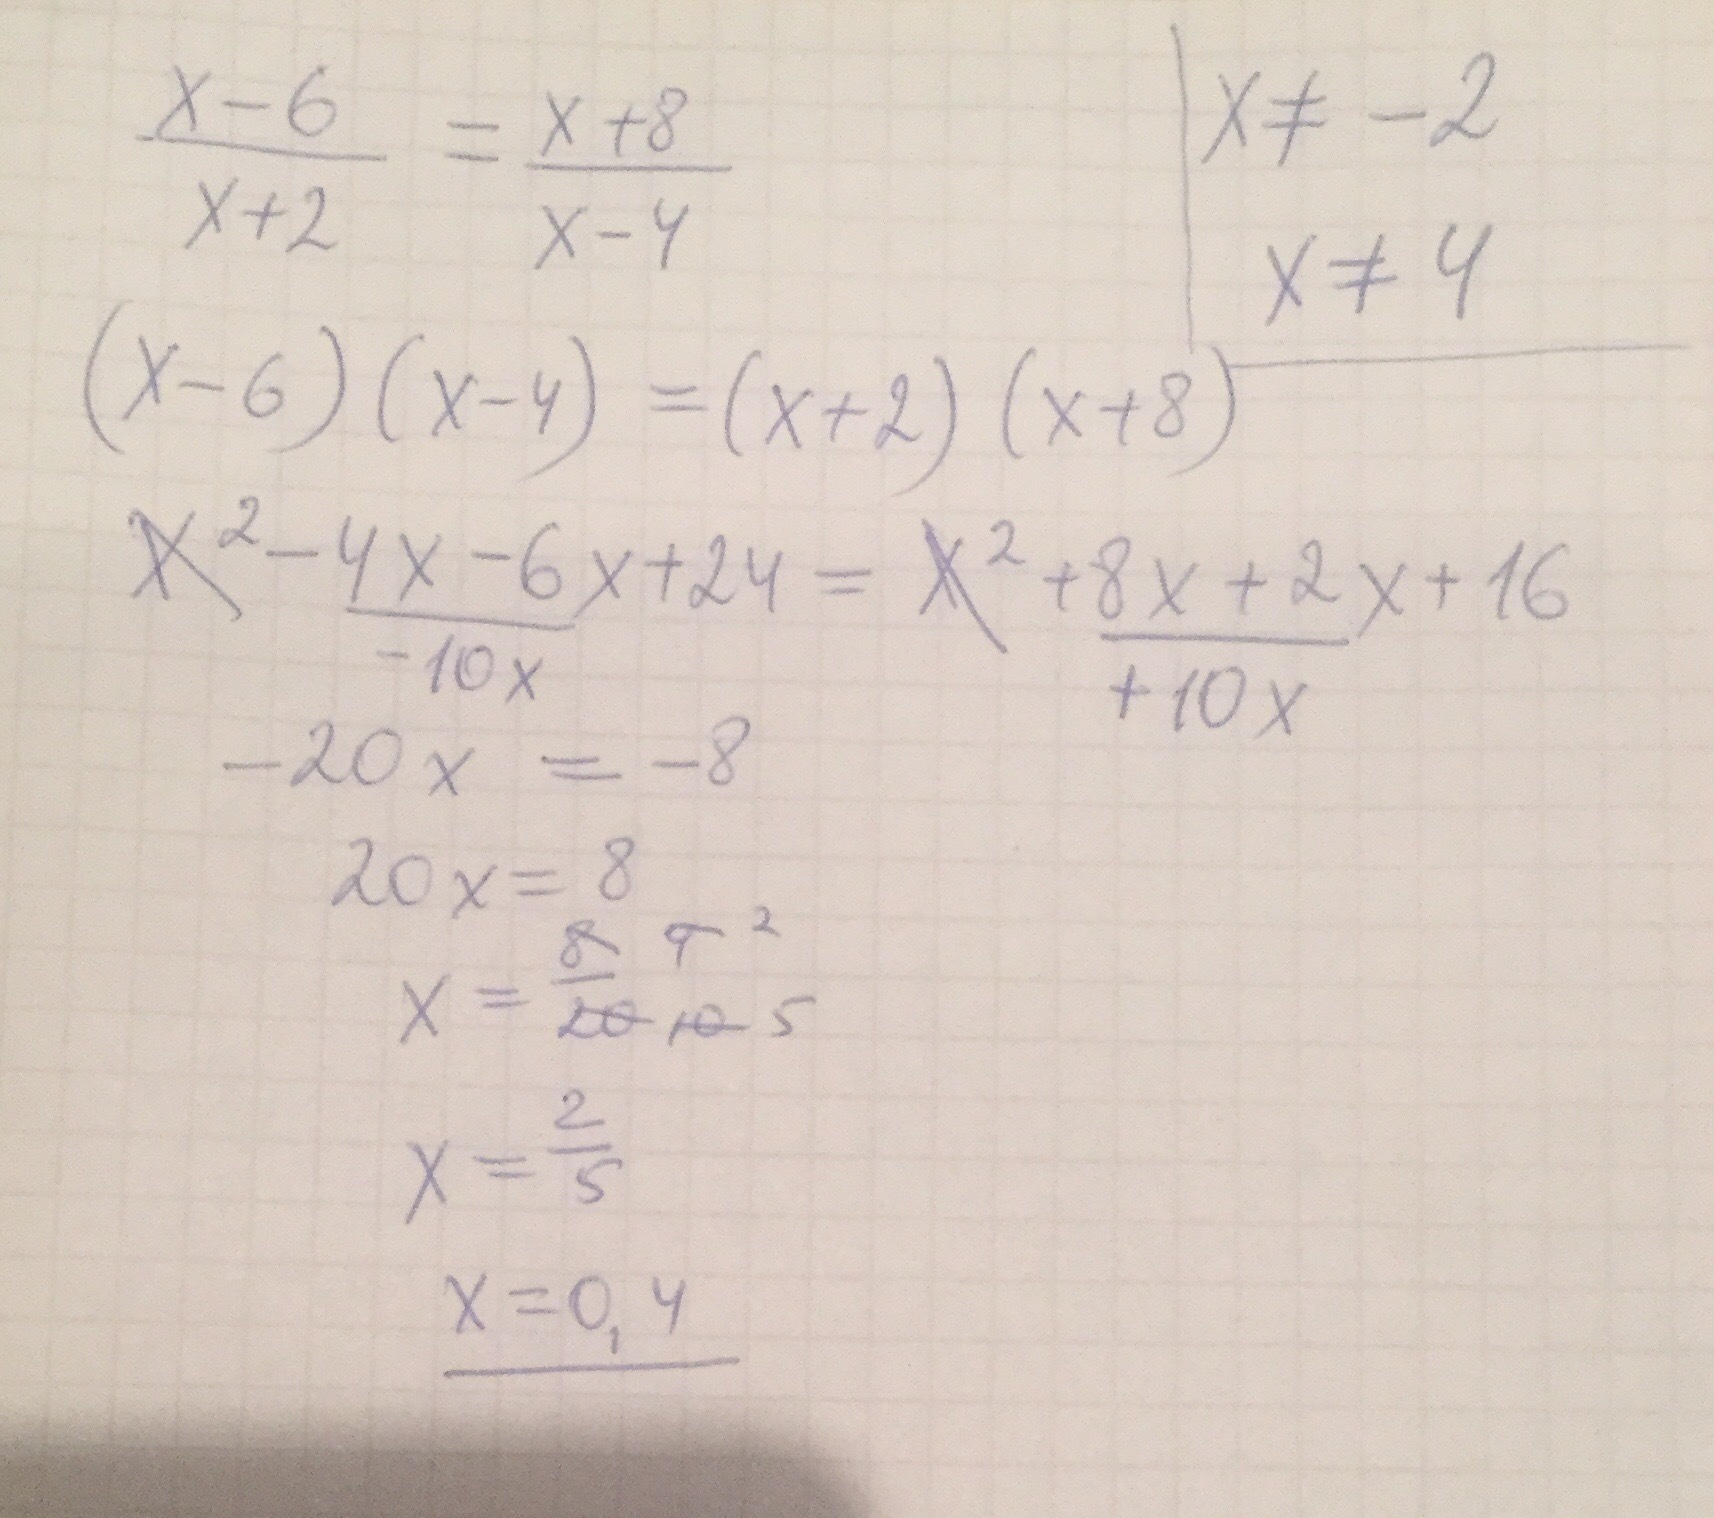 x-6/x+2 = x+8/x-4
x≠ -2
x≠ 4
(x-6)(x-4) = (x+2)(x+8)
x²-4x-6x+24 = x²+8x+2x+16
-10x +10x
-20x = -8
20x = 8
x = 8/20 4/10 2/5
x = 2/5
x = 0,4